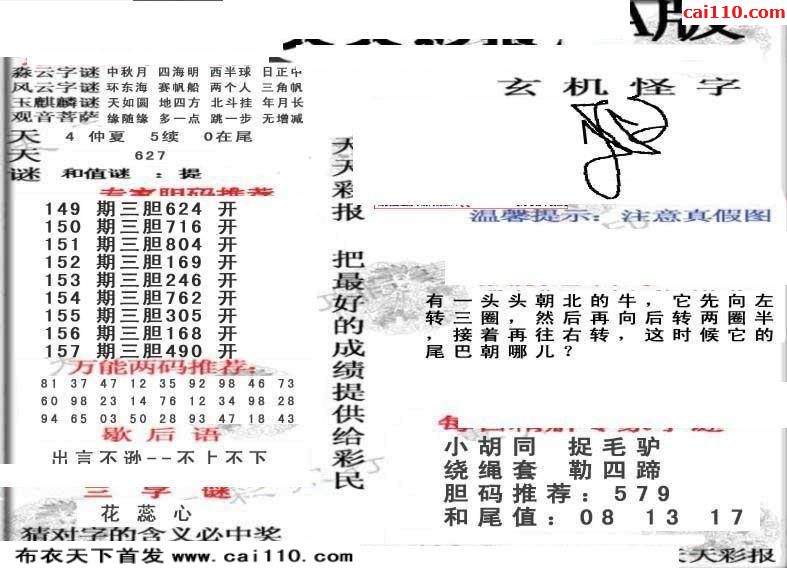 cai110.com
A版
天天彩报
森云字谜 中秋月 四海明 西半球 日正中
风云字谜 环东海 赛帆船 两个人 三角帆
玉麒麟谜 天如圆 地四方 北斗挂 年月长
观音菩萨 缘随缘 多一点 跳一步 无增减
天 4 仲夏 5续 0在尾
天 627
谜 和值谜 : 提
专家胆码推荐
149 期三胆624 开
150 期三胆716 开
151 期三胆804 开
152 期三胆169 开
153 期三胆246 开
154 期三胆762 开
155 期三胆305 开
156 期三胆168 开
157 期三胆490 开
万能两码推荐:
81 37 47 12 35 92 98 46 73
60 98 23 14 76 12 34 98 28
94 65 03 50 28 93 47 18 43
歇后语
出言不逊--不上不下
三字谜
花蕊心
猜对字的含义必中奖
布衣天下首发 www.cai110.com
天天彩报 把最好的成绩提供给彩民
玄机怪字
温馨提示: 注意真假图
有一头头朝北的牛，它先向左
转三圈，然后再向后转两圈半
，接着再往右转，这时候它的
尾巴朝哪儿？
小胡同 捉毛驴
绕绳套 勒四蹄
胆码推荐: 579
和尾值: 08 13 17
天天彩报